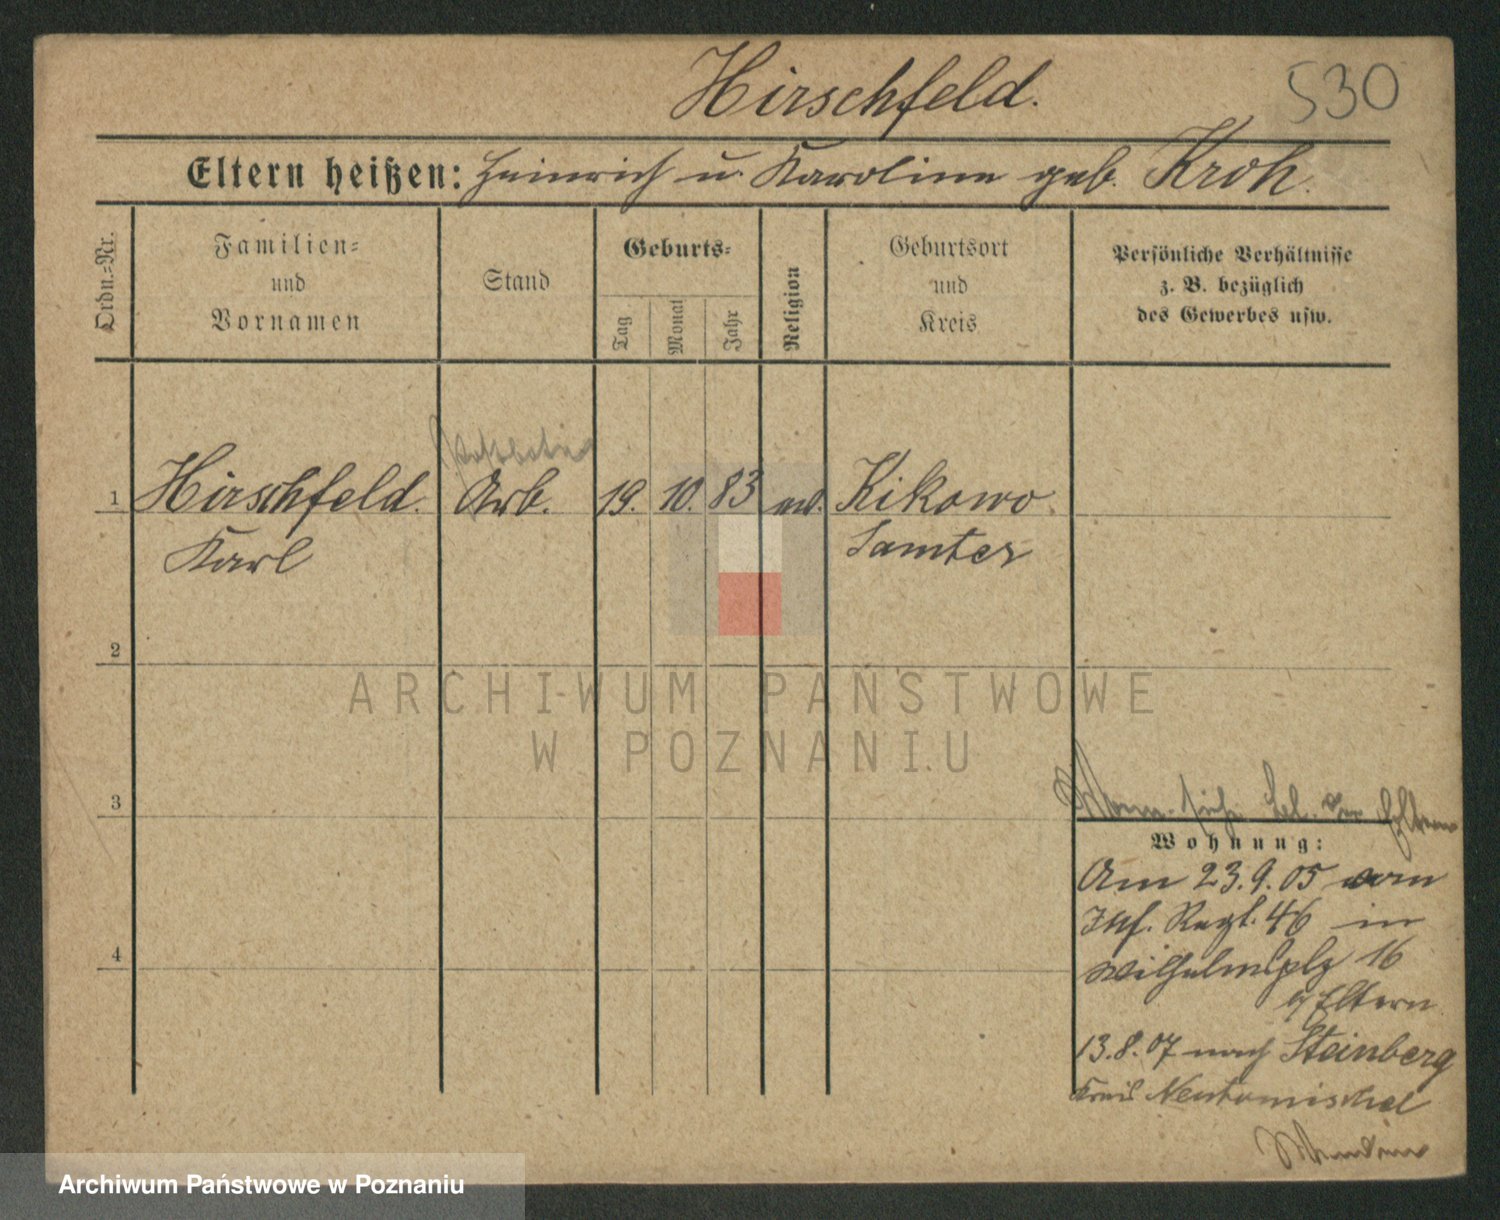 Hirschfeld.
530
Eltern heißen: Heinrich u. Karoline geb. Kroh.
Ordn.=Nr.
Familien=
und
Vornamen
Stand
Geburts=
Tag
Monat
Jahr
Religion
Geburtsort
und
Kreis
Persönliche Verhältnisse
z. B. bezüglich
des Gewerbes usw.
Postbote
1 Hirschfeld. Arb. 19. 10. 83 ev. Kikowo.
Karl Samter
2
ARCHIWUM PAŃSTWOWE
W POZNANIU
3
siehe bei der Eltern
Wohnung:
Am 23.9.05 vom
Inf. Regt. 46 in
Wilhelmsplz 16
Eltern
4
13.8.07 nach Steinberg
Kreis Neutomischel
Archiwum Państwowe w Poznaniu